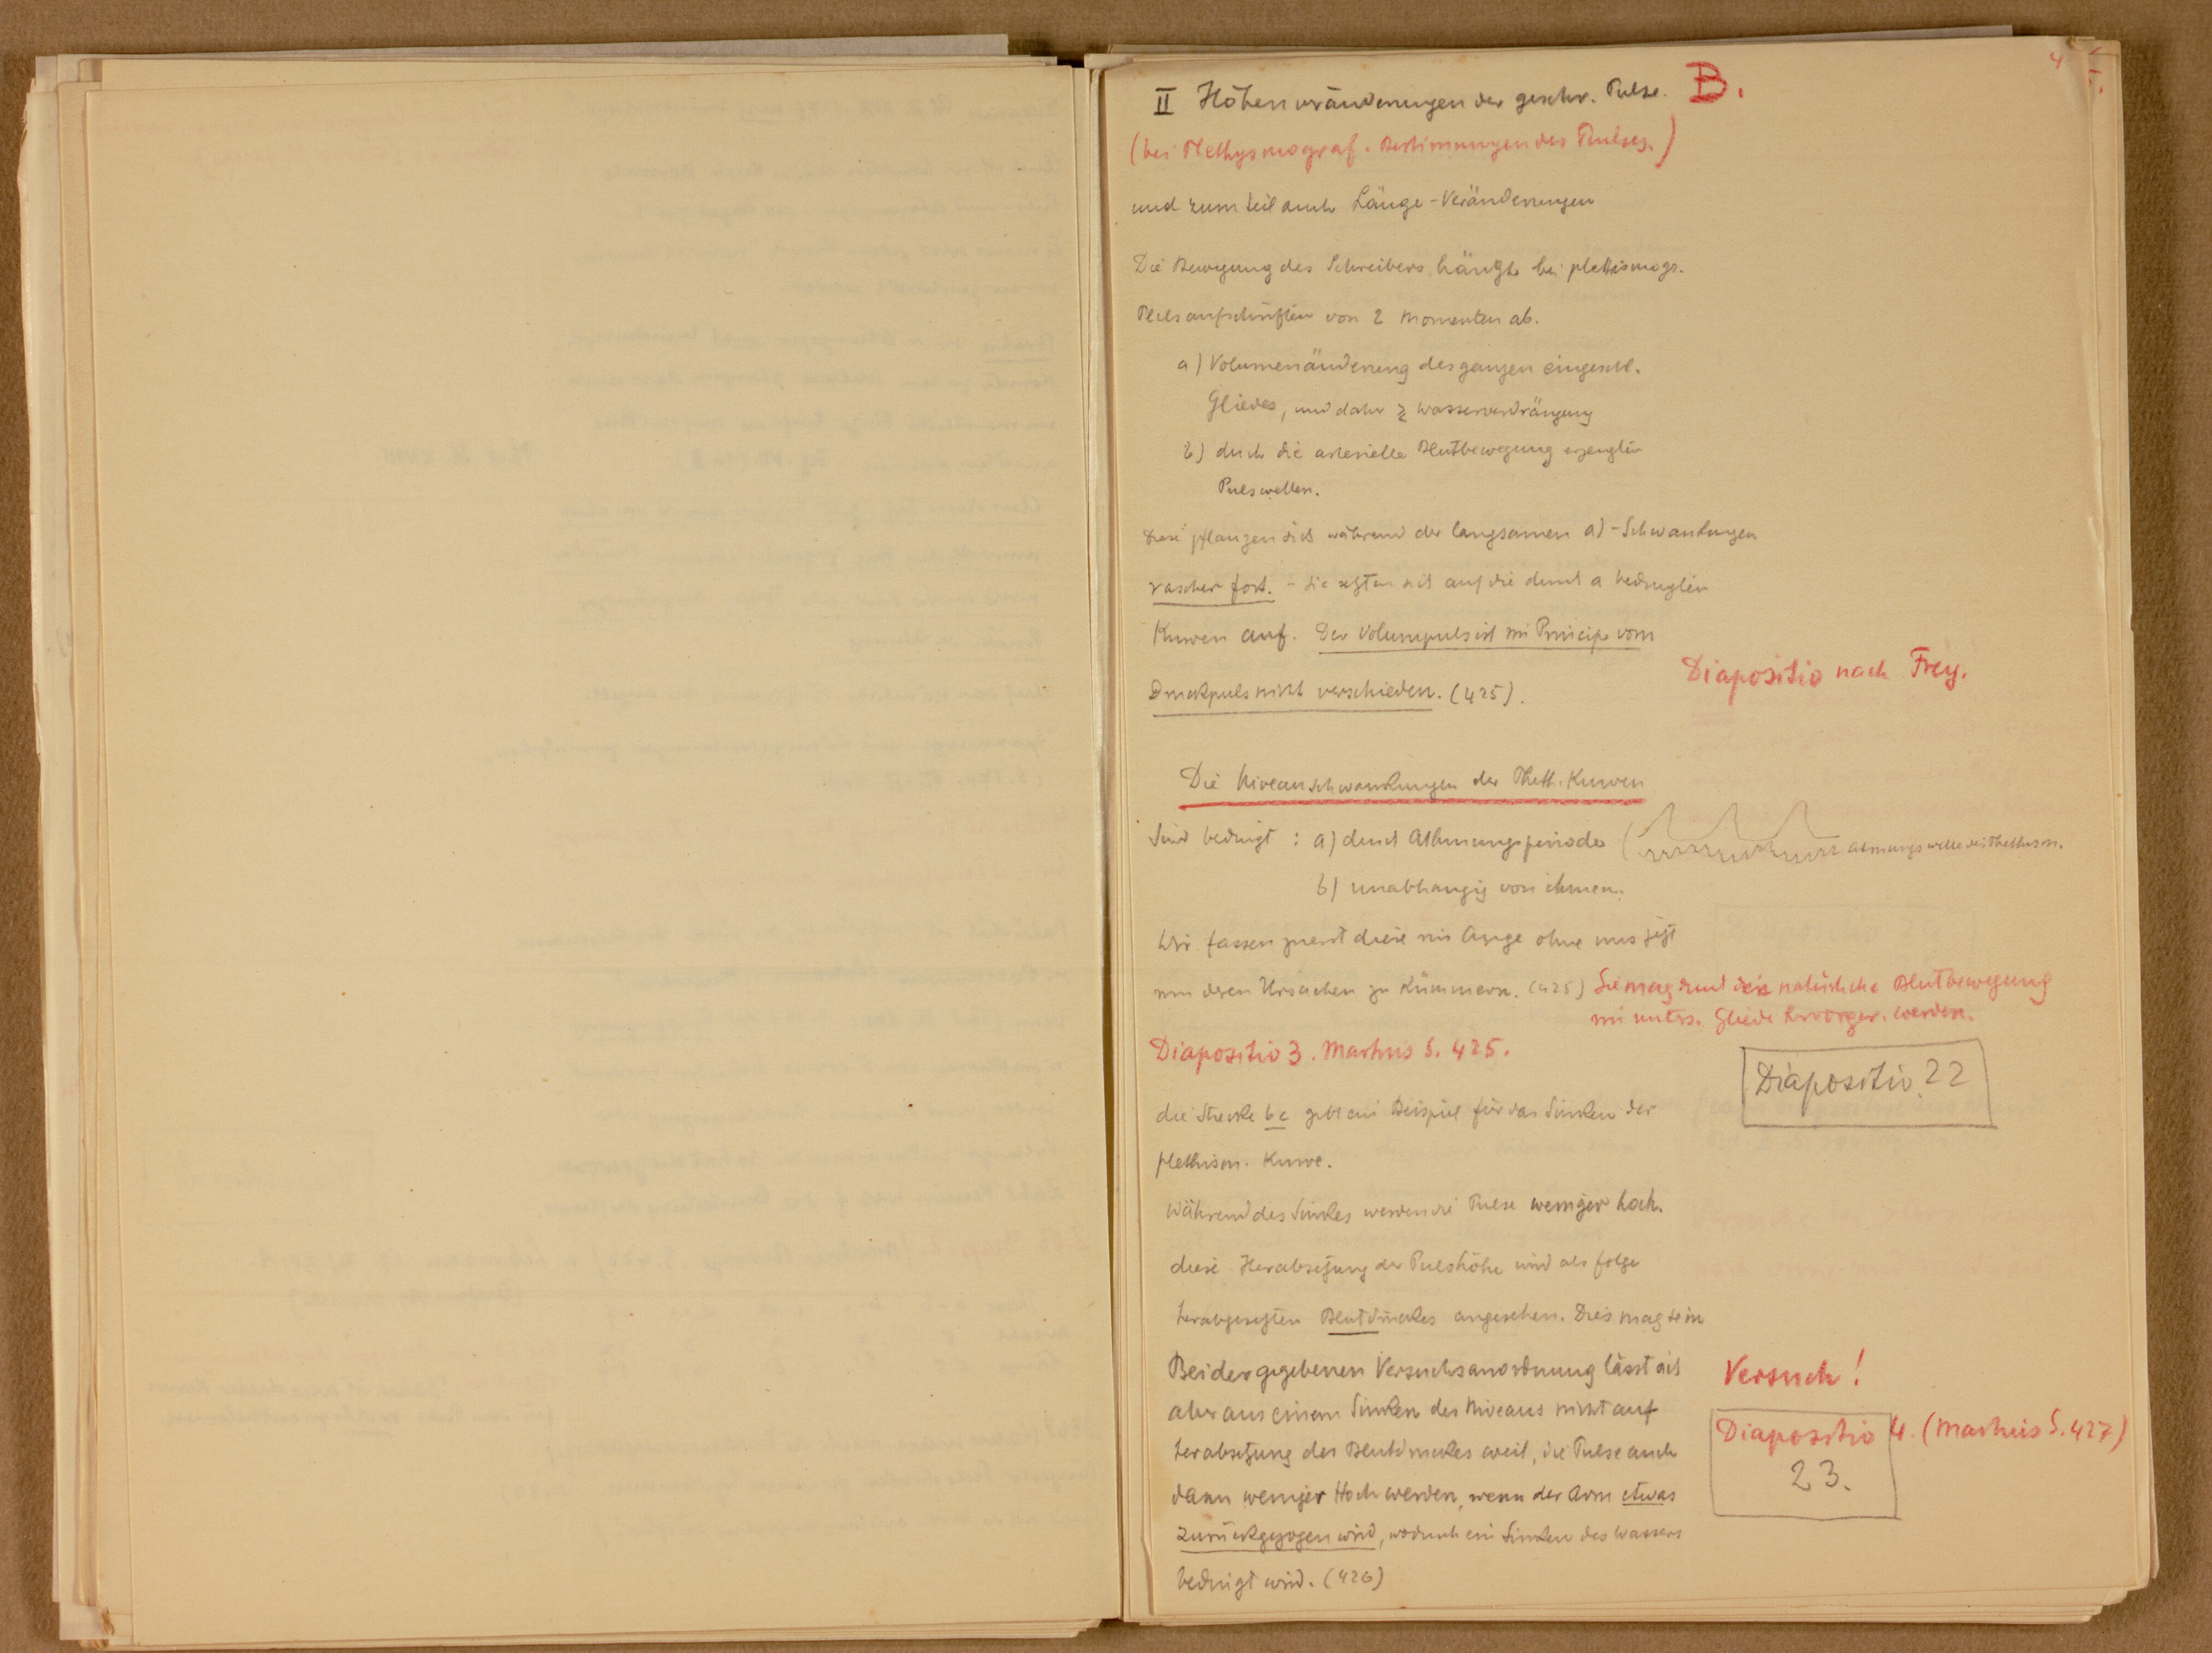 4
II Höhenveränderungen der geschr. Pulse. B.
(bei Plethysmograf. Bestimmungen des Pulses.)
und zum teil auch Länge-Veränderungen
Die Bewegung des Schreibers hängt bei plethismogr.
Pulsaufschriften von 2 Momenten ab.
a) Volumenänderung des ganzen eingeschl.
Gliedes, und daher Wasserverdrängung
b) durch die arterielle Blutbewegung erzeugten
Pulswellen.
Diese pflanzen sich während der langsamen a)-Schwankungen
rascher fort. - sie setzten sich auf die durch a bedingten
Kurven auf. Der Volumpuls ist im Princip vom
Druckpuls nicht verschieden. (425).
Diapositiv nach Frey.
Die Niveauschwankungen der Pleth. Kurven
Sind bedingt : a) durch Athmungsperiode ( atmungswelle bei Plethysm.
b) unabhangig von ihnen.
Wir fassen zuerst diese ins Auge ohne uns jetzt
um deren Ursachen zu kümmern. (425) Sie mag durch die natürliche Blutbewegung
im unters. Gliede hervorger. werden.
Diapositiv 3. Martius S. 425.
Diapositiv 22
die Strecke bc gibt ein Beispiel für das Sinken der
plethism. Kurve.
Während des Sinkes werden die Pulse weniger hoch.
diese Herabsetzung der Pulshöhe wird als folge
herabgesetzten Blutdruckes angesehen. Dies mag sein
Bei der gegebenen Versuchsanordnung lässt sich
aber aus einem Sinken des Niveaus nicht auf
herabsetzung des Blutdruckes weil, die Pulse auch
dann weniger Hoch werden, wenn der Arm etwas
zurückgezogen wird, wodurch ein Sinken des Wassers
bedingt wird. (426)
Versuch!
Diapositiv 4. (Martius S. 427)
23.